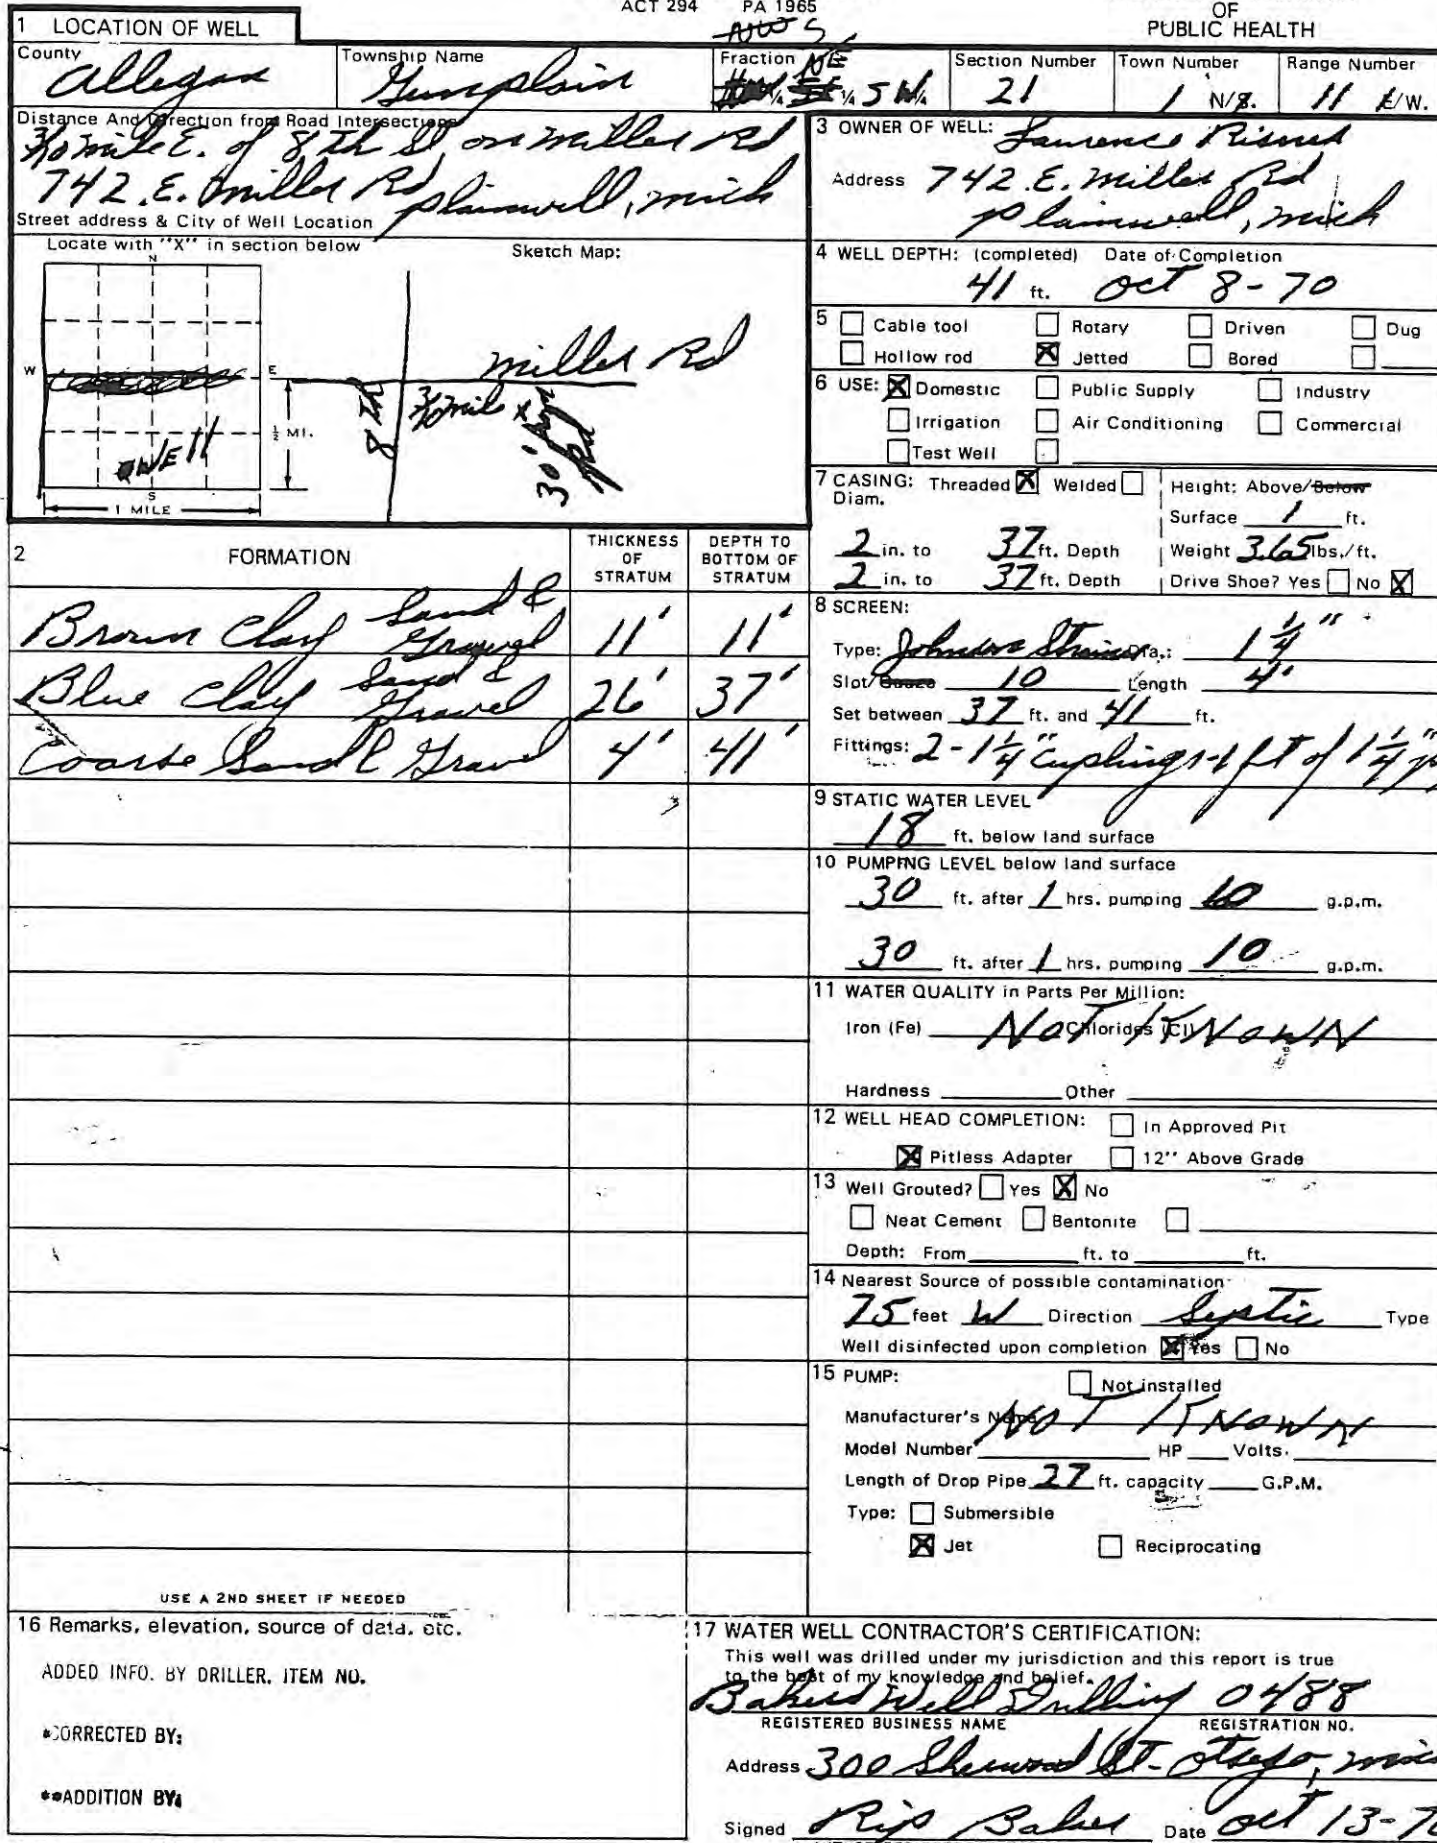 ACT 294 PA 1965
OF
PUBLIC HEALTH
1 LOCATION OF WELL
County Allegan
Township Name Gunplain
Fraction NE ¼ ¼ SW ¼
Section Number 21
Town Number 1 N/S.
Range Number 11 E/W.
Distance And Direction from Road Intersections
3/10 mile E. of 8th St on Miller Rd
742 E. Miller Rd Plainwell, Mich
Street address & City of Well Location
Locate with "X" in section below
Sketch Map:
N
W
E
S
½ MI.
1 MILE
WELL
Miller Rd
8 TH
3/10 mile x
30'
3 OWNER OF WELL: Laurence
Address 742 E. Miller Rd
Plainwell, Mich
4 WELL DEPTH: (completed) Date of Completion
41 ft. Oct 8-70
5 Cable tool Rotary Driven Dug
Hollow rod X Jetted Bored
6 USE: X Domestic Public Supply Industry
Irrigation Air Conditioning Commercial
Test Well
7 CASING: Threaded X Welded Height: Above/Below
Diam. Surface 1 ft.
2 in. to 37 ft. Depth Weight 3.65 lbs./ft.
2 in. to 37 ft. Depth Drive Shoe? Yes No X
2 FORMATION
THICKNESS OF STRATUM
DEPTH TO BOTTOM OF STRATUM
Brown Clay Sand & Gravel 11' 11'
Blue Clay Sand & Gravel 26' 37'
Coarse Sand & Gravel 4' 41'
8 SCREEN:
Type: Johnson Dia.: 1 ¼"
Slot/Gauze 10 Length 4'
Set between 37 ft. and 41 ft.
Fittings: 2 - 1 ¼" Cuplings - 1 ft of 1 ¼"
9 STATIC WATER LEVEL
18 ft. below land surface
10 PUMPING LEVEL below land surface
30 ft. after 1 hrs. pumping 10 g.p.m.
30 ft. after 1 hrs. pumping 10 g.p.m.
11 WATER QUALITY in Parts Per Million:
Iron (Fe) Chlorides (Cl)
NOT KNOWN
Hardness Other
12 WELL HEAD COMPLETION: In Approved Pit
X Pitless Adapter 12" Above Grade
13 Well Grouted? Yes X No
Neat Cement Bentonite
Depth: From ft. to ft.
14 Nearest Source of possible contamination
75 feet W Direction Septic Type
Well disinfected upon completion X Yes No
15 PUMP: Not installed
Manufacturer's Name NOT KNOWN
Model Number HP Volts.
Length of Drop Pipe 27 ft. capacity G.P.M.
Type: Submersible
X Jet Reciprocating
USE A 2ND SHEET IF NEEDED
16 Remarks, elevation, source of data, etc.
ADDED INFO. BY DRILLER, ITEM NO.
*CORRECTED BY:
**ADDITION BY:
17 WATER WELL CONTRACTOR'S CERTIFICATION:
This well was drilled under my jurisdiction and this report is true
to the best of my knowledge and belief.
Bakers Well Drilling 0488
REGISTERED BUSINESS NAME REGISTRATION NO.
Address 300 Sherwood St - Otsego, Mich
Signed Rip Baker Date Oct 13-70